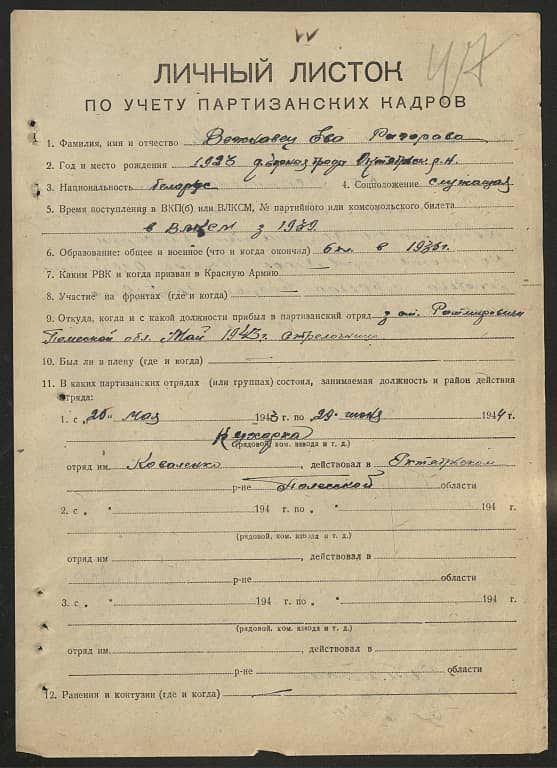 47
ЛИЧНЫЙ ЛИСТОК
ПО УЧЕТУ ПАРТИЗАНСКИХ КАДРОВ
1. Фамилия, имя и отчество Ева
2. Год и место рождения 1923
3. Национальность беларус 4. Соцположение служащая
5. Время поступления в ВКП(б) или ВЛКСМ, № партийного или комсомольского билета
в ВЛКСМ з 1939
6. Образование: общее и военное (что и когда окончил) 6 кл. в 1935г.
7. Каким РВК и когда призван в Красную Армию
8. Участие на фронтах (где и когда)
9. Откуда, когда и с какой должности прибыл в партизанский отряд
обл. Май 1943
10. Был ли в плену (где и когда)
11. В каких партизанских отрядах (или группах) состоял, занимаемая должность и район действия
отряда:
1. с „ мая 1943 г. по 29 июня 1944 г.
Кухарка
(рядовой, ком. взвода и т. д.)
отряд им. Коваленко, действовал в Октябрьском
р-не Полесской области
2. с „ " 194 г. по „ " 194 г.
(рядовой, ком. взвода и т. д.)
отряд им., действовал в
р-не области
3. с „ " 194 г. по „ " 194 г.
(рядовой, ком. взвода и т. д.)
отряд им., действовал в
р-не области
12. Ранения и контузии (где и когда)